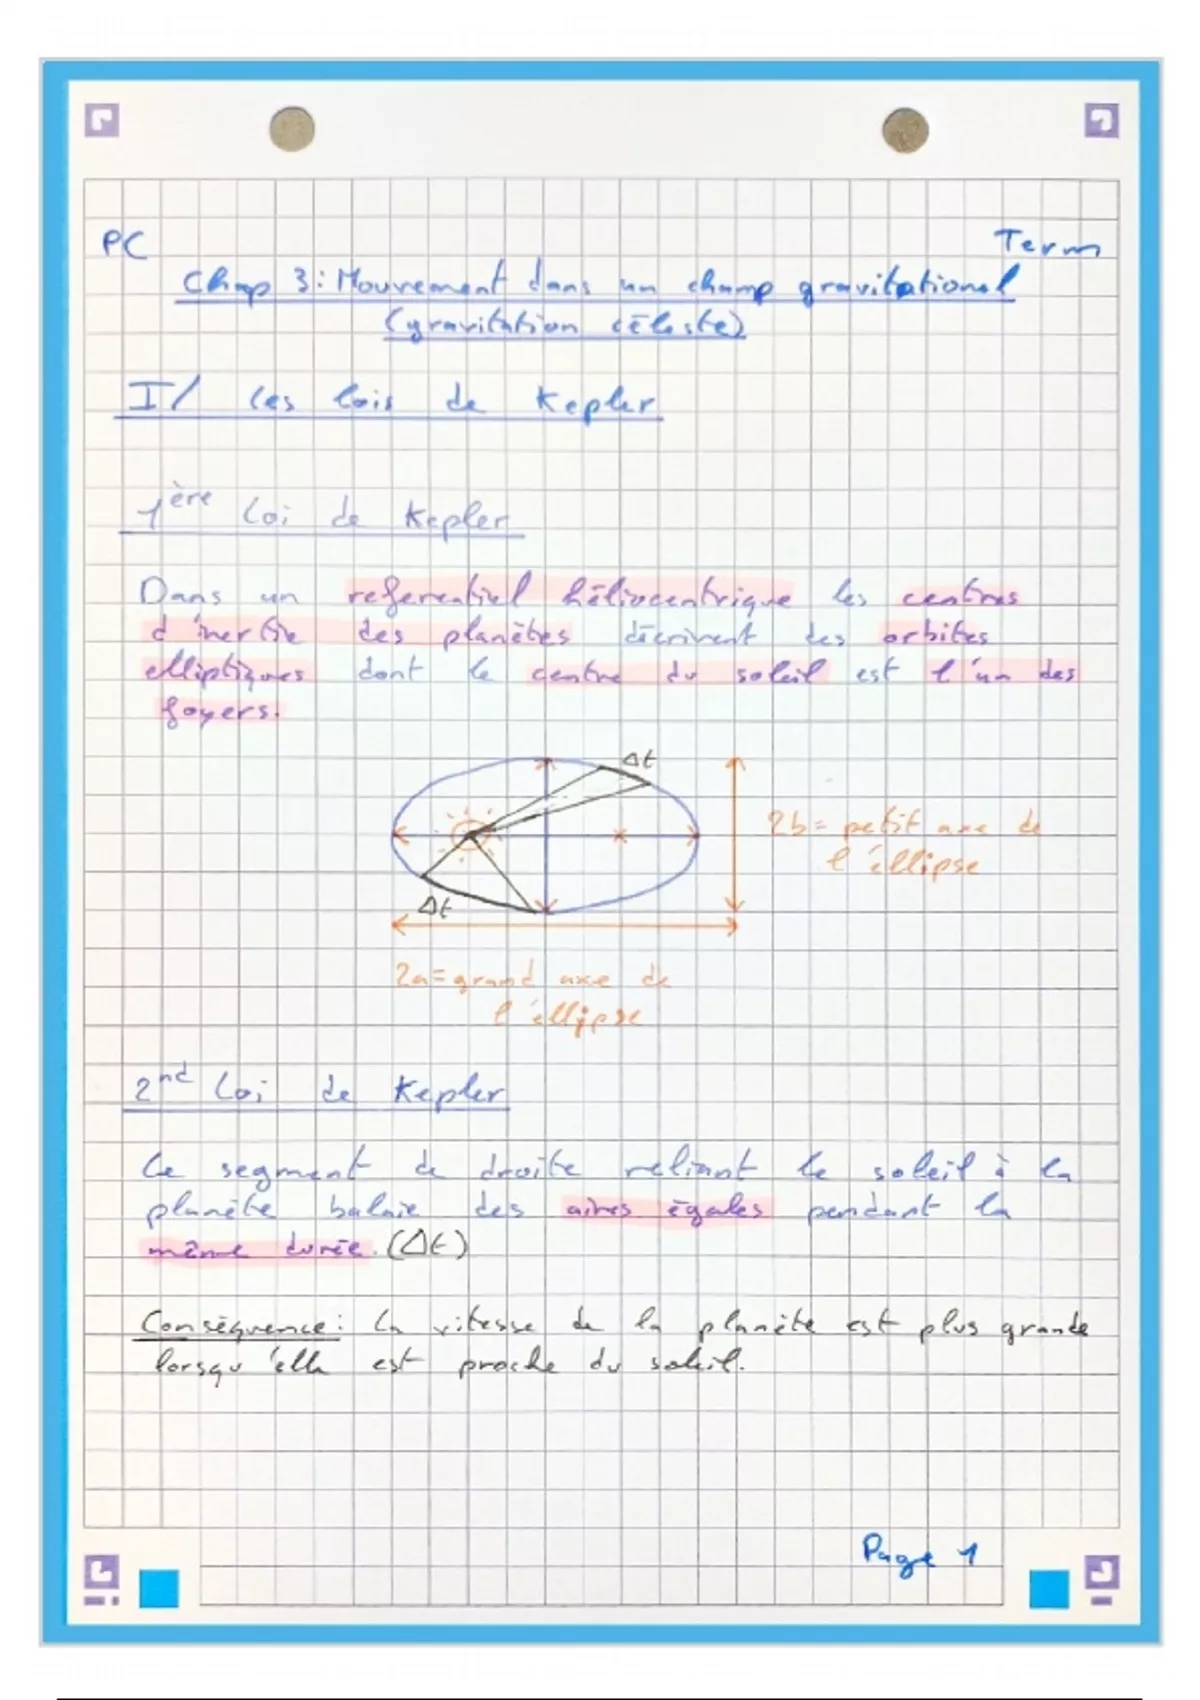 PC
Term
Chap 3: Mouvement dans un champ gravitational
(gravitation céleste)
I/ Les lois de Kepler
1ère Loi de Kepler
Dans un referentiel héliocentrique les centres
d'inertie des planètes décrivent des orbites
elliptiques dont le centre du soleil est l'un des
foyers.
Δt
2b = petit axe de
l'éllipse
Δt
2a = grand axe de
l'éllipse
2nd Loi de Kepler
Le segment de droite reliant le soleil à la
planète balaie des aires égales pendant la
même durée. (Δt)
Conséquence: La vitesse de la planète est plus grande
lorsqu'elle est proche du soleil.
Page 1